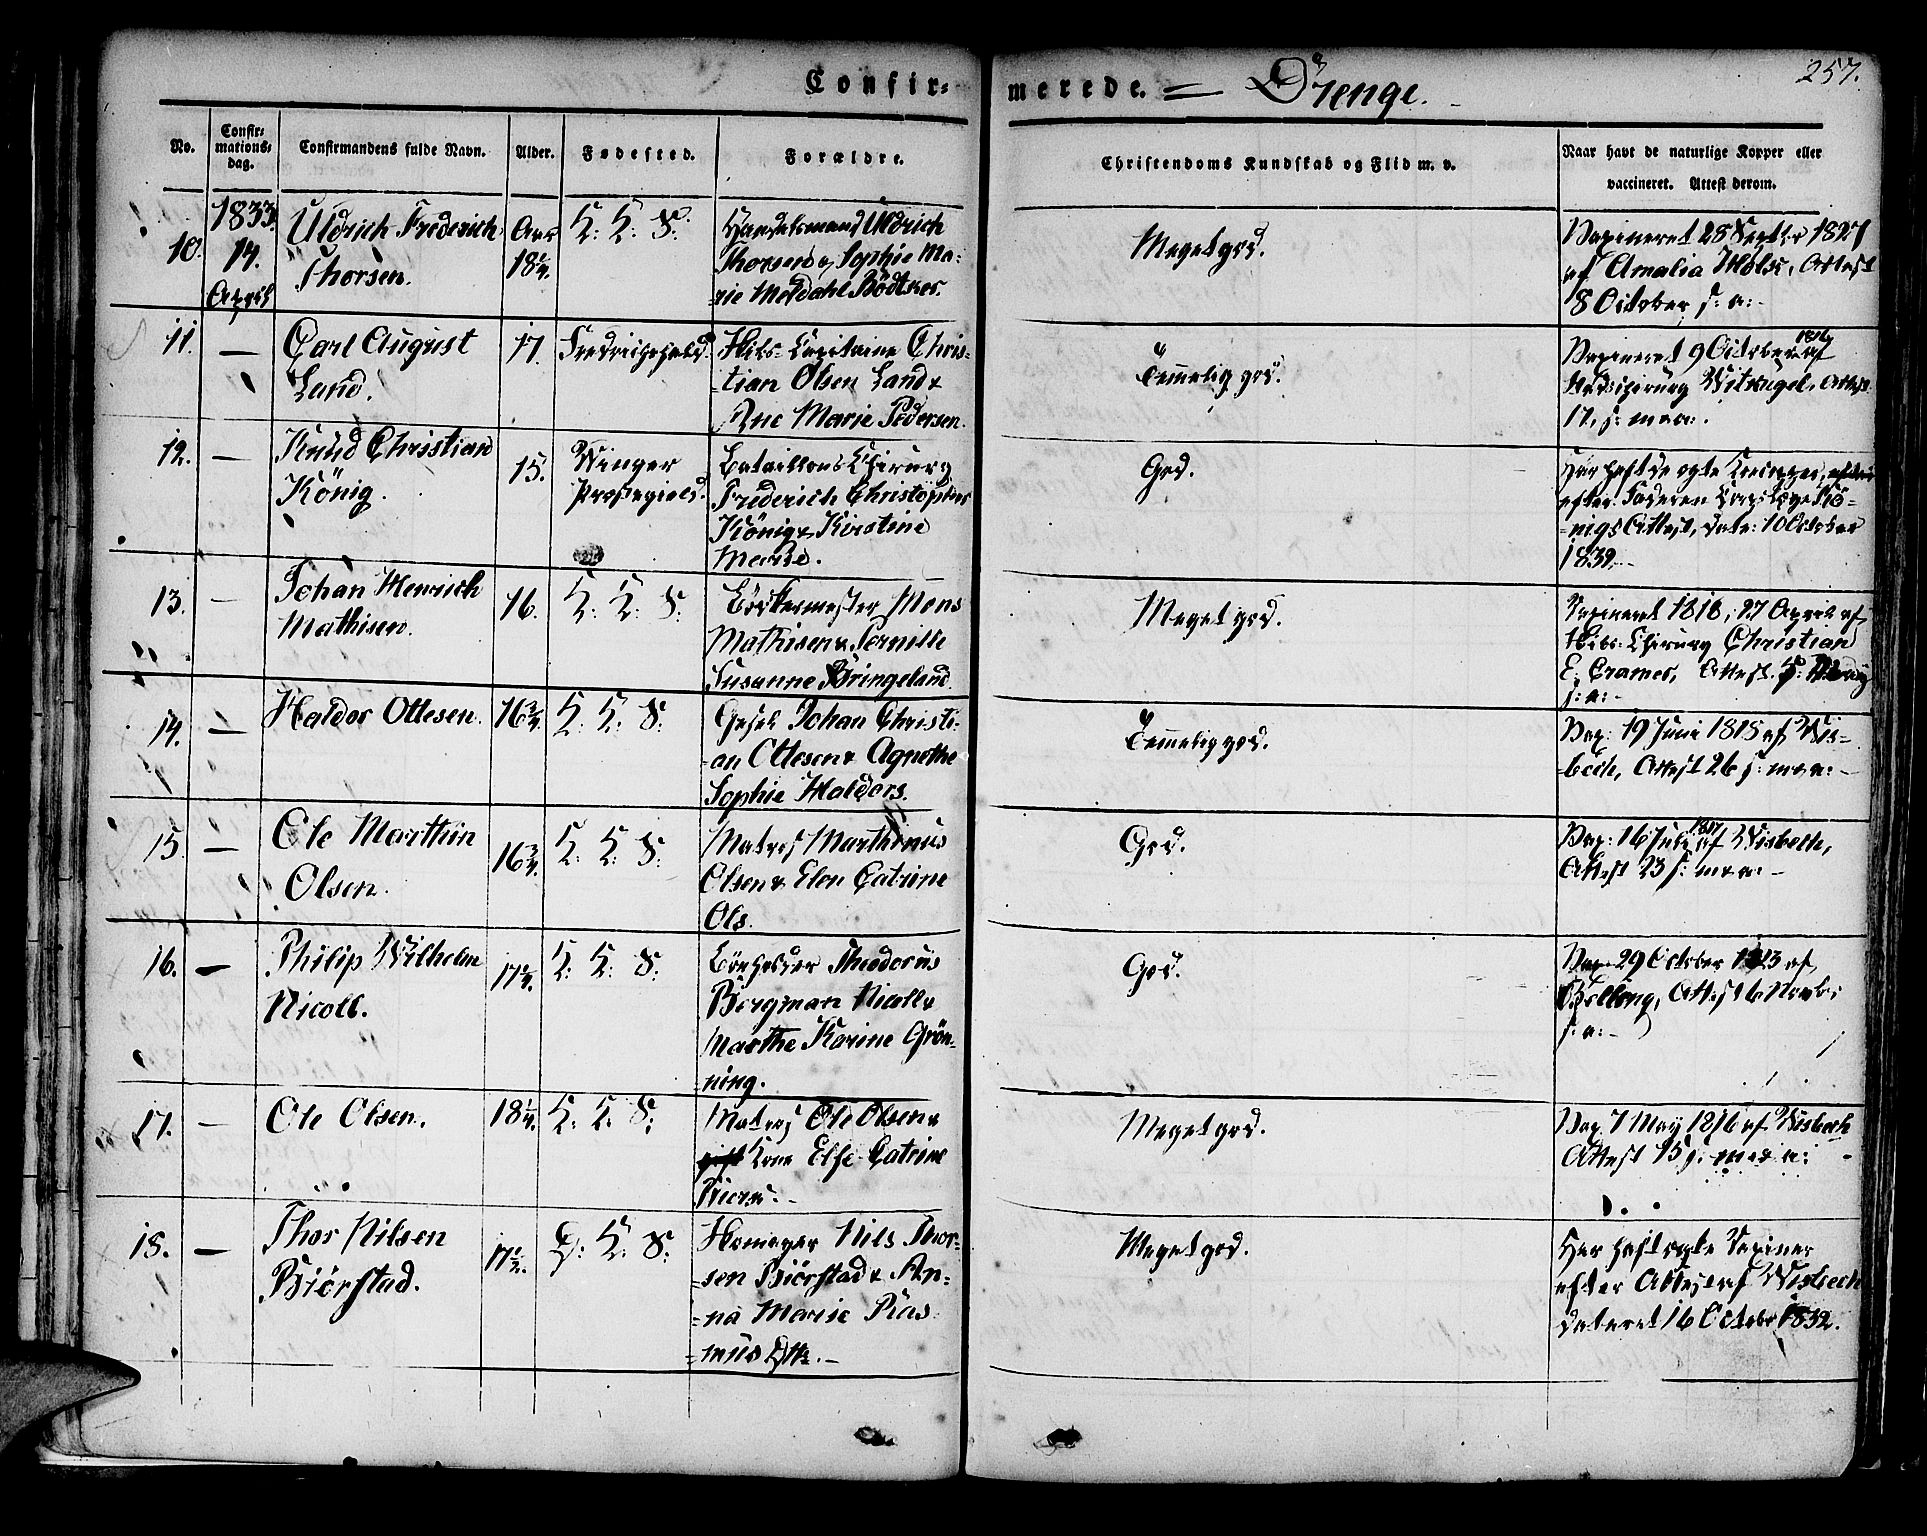 Confir-
merede. = Drenge.
257.
No.
Confir-
mations-
dag.
Confirmandens fulde Navn.
Alder.
Fødested.
Forældre.
Christendoms Kundskab og Flid m. v.
Naar havt de naturlige Kopper eller
vaccineret. Attest derom.
10.
1833.
14.
April
Uldrich Frederich
Thorsen.
Aar
18 1/4.
K: K: S:
Handelsmand Uldrich
Thorsen & Sophie Ma-
rie Møldahl Bödtker.
Meget god.
Vaxineret 28 Septbr 1827
af Amalia Attest
8 October s: a: -
11.
—
Carl August
Land.
17.
Fredrichshald.
Capitaine Chris-
-tian Olsen Land &
Ane Marie Pedersen.
Temmelig god.
Vaxineret 9 October 1816 af
Attest
17. s: m & a: .
12.
—
Knud Christian
König.
15.
Winger
Præstegield.
Batallions Chirurg
Frederich Christopher
König & Kirstine
Marie.
God.
Har havt de ægte
efter Faderen Kö-
-nigs Attest, dat: 10 October
1832. -
13.
—
Johan Henrich
Mathisen.
16.
K: K: S:
Bödkermester Mons
Mathisen & Pernille
Susanne Bringeland.
Meget god.
Vaxineret 1818, 27 April af
Chirurg Christian
E. Cramer, Attest
s: a: -
14.
—
Haldor Ottesen.
16 3/4.
K: K: S:
Johan Christi-
-an Ottesen & Agnethe
Sophie Haldors.
Temmelig god.
Vax: 19 Juni 1818 af Wis-
-bech, Attest 26 s: m & a: -
15.
—
Ole Marthin
Olsen.
16 3/4.
K: K: S:
Matros Marthinus
Olsen & Elen Catrine
Ols.
God.
Vax: 16 Juli 1817 af Wisbech,
Attest 23 s: m & a: -
16.
—
Philip Wilhelm
Nicoll.
K: K: S:
Theodorus
Bergman Nicoll &
Marthe Karine Grön-
-ning.
God.
Vax: 29 October af
Attest 6 Novbr
s: a: -
17.
—
Ole Olsen.
18 1/4.
K: K: S:
Matros Ole Olsen &
Kone Else Catrine
Meget god.
Vax. 7 May 1816 af Wisbech
Attest 15 s: m & a: -
18.
—
Thor Nilsen
Biörstad.
17 1/2.
D: K: S:
Nils Thor-
-sen Biörstad & An-
-na Marie Ras-
-mus Dtr. -
Meget god.
Har havt ægte Vaxiner
efter Attest af Wisbech
dateret 16 Octobr 1832.